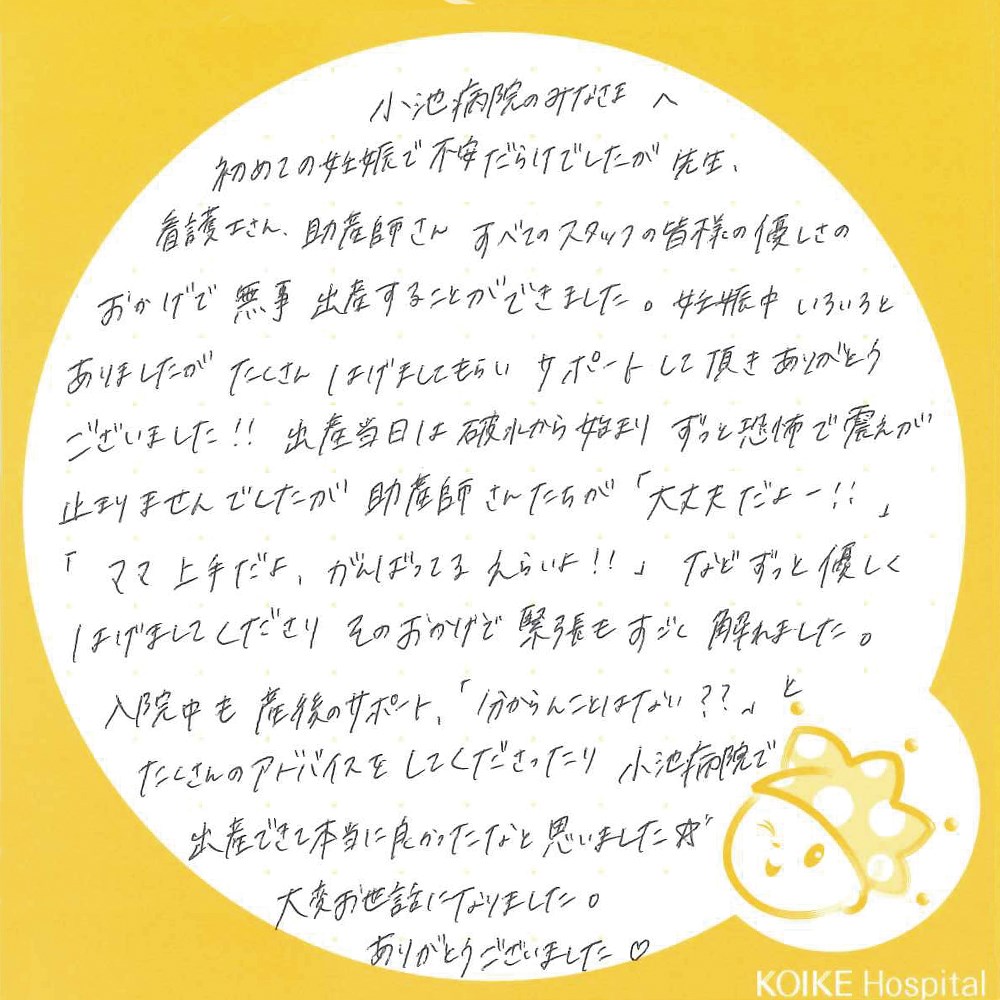 小池病院のみなさま へ
初めての妊娠で不安だらけでしたが 先生、
看護士さん、助産師さん すべてのスタッフの皆様の優しさの
おかげで 無事 出産することができました。妊娠中 いろいろと
ありましたが たくさん はげましてもらい サポートして頂きありがとう
ございました!! 出産当日は破水から始まり ずっと恐怖で震えが
止まりませんでしたが 助産師さんたちが「大丈夫だよー!!」
「ママ 上手だよ、がんばってる えらいよ!!」などずっと優しく
はげましてくださり そのおかげで 緊張もすごく 解れました。
入院中も 産後のサポート、「分からんことはない??」と
たくさんのアドバイスをしてくださったり 小池病院で
出産できて本当に良かったなと思いました☆
大変お世話になりました。
ありがとうございました♡
KOIKE Hospital